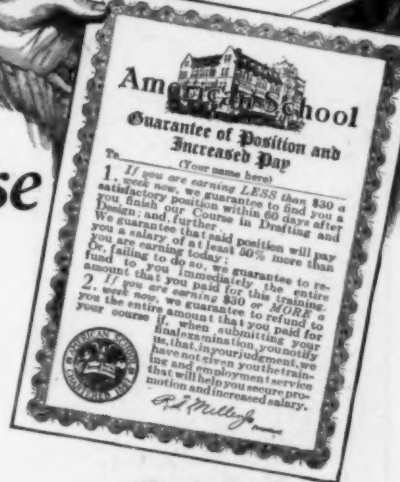 se
American School
Guarantee of Position and
Increased Pay
To
(Your name here)
1. If you are earning LESS than $30 a
week now, we guarantee to find you a
satisfactory position within 60 days after
you finish our Course in Drafting and
Design; and, further,
We guarantee that said position will pay
you a salary of at least 50% more than
you are earning today;
Or, failing to do so, we guarantee to re-
fund to you immediately the entire
amount that you paid for this training.
2. If you are earning $30 or MORE a
week now, we guarantee to refund to
you the entire amount that you paid for
your course if, when submitting your
final examination, you notify
us, that, in your judgment, we
have not given you the train-
ing and employment service
that will help you secure pro-
motion and increased salary.
AMERICAN SCHOOL
CHARTERED 1897